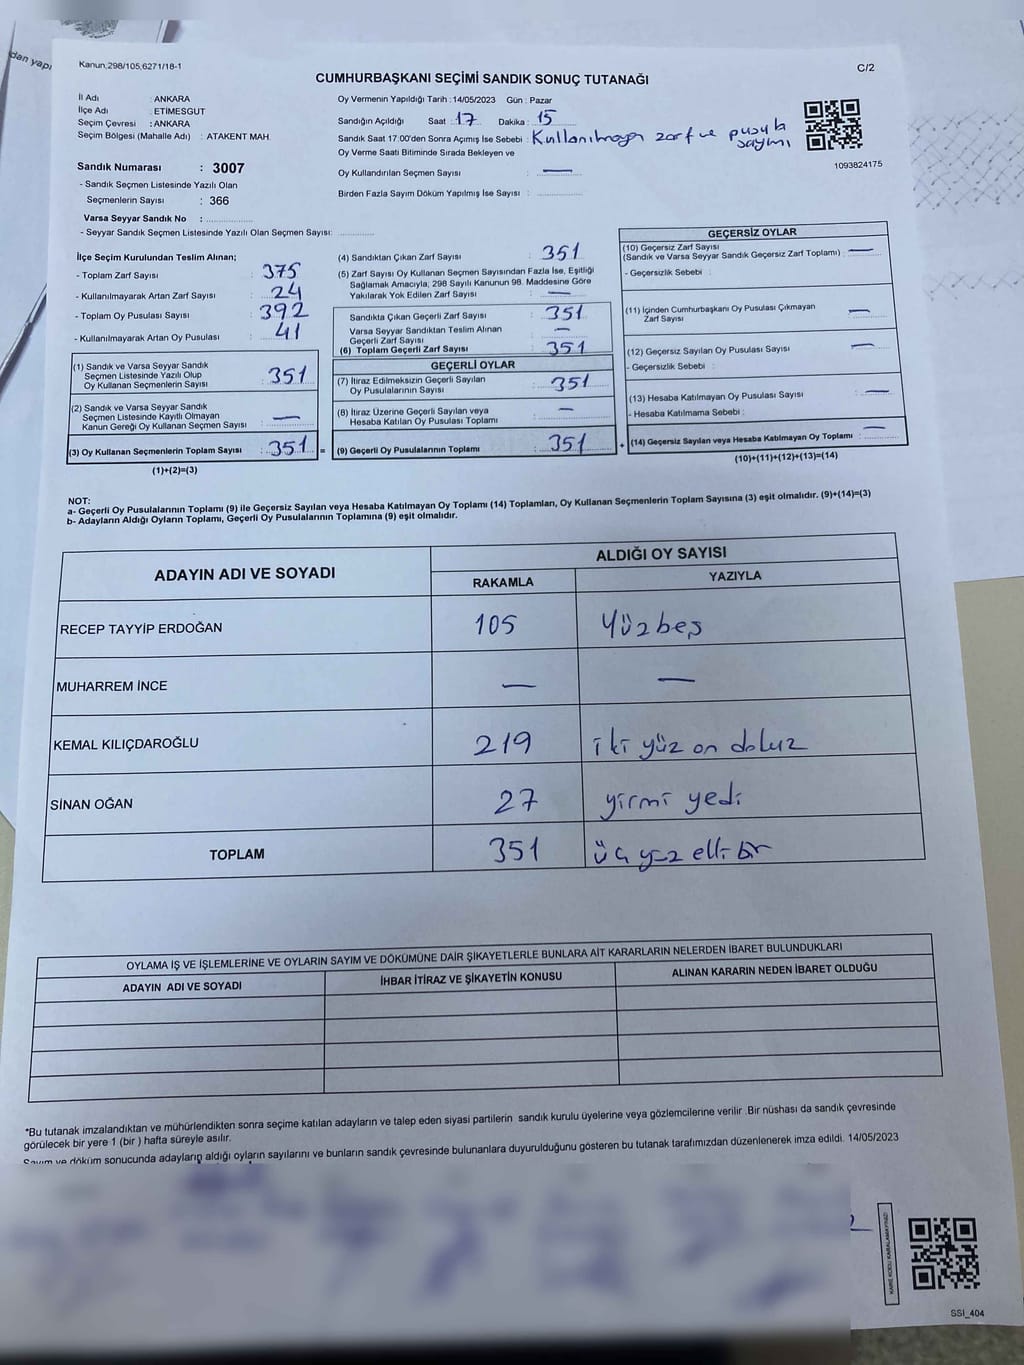 dan yapı
Kanun,298/105,6271/18-1
C/2
CUMHURBAŞKANI SEÇİMİ SANDIK SONUÇ TUTANAĞI
İl Adı : ANKARA
İlçe Adı : ETİMESGUT
Seçim Çevresi : ANKARA
Seçim Bölgesi (Mahalle Adı) : ATAKENT MAH.
Oy Vermenin Yapıldığı Tarih : 14/05/2023 Gün : Pazar
Sandığın Açıldığı Saat : 17 Dakika : 15
Sandık Saat 17:00'den Sonra Açımış İse Sebebi : Kullanılmayan zarf ve pusula sayımı
Oy Verme Saati Bitiminde Sırada Bekleyen ve
Oy Kullandırılan Seçmen Sayısı : —
Birden Fazla Sayım Döküm Yapılmış İse Sayısı :
1093824175
Sandık Numarası : 3007
- Sandık Seçmen Listesinde Yazılı Olan
Seçmenlerin Sayısı : 366
Varsa Seyyar Sandık No :
- Seyyar Sandık Seçmen Listesinde Yazılı Olan Seçmen Sayısı:
İlçe Seçim Kurulundan Teslim Alınan;
- Toplam Zarf Sayısı : 375
- Kullanılmayarak Artan Zarf Sayısı : 24
- Toplam Oy Pusulası Sayısı : 392
- Kullanılmayarak Artan Oy Pusulası : 41
(1) Sandık ve Varsa Seyyar Sandık
Seçmen Listesinde Yazılı Olup
Oy Kullanan Seçmenlerin Sayısı : 351
(2) Sandık ve Varsa Seyyar Sandık
Seçmen Listesinde Kayıtlı Olmayan
Kanun Gereği Oy Kullanan Seçmen Sayısı : —
(3) Oy Kullanan Seçmenlerin Toplam Sayısı : 351 =
(1)+(2)=(3)
(4) Sandıktan Çıkan Zarf Sayısı : 351
(5) Zarf Sayısı Oy Kullanan Seçmen Sayısından Fazla İse, Eşitliği
Sağlamak Amacıyla; 298 Sayılı Kanunun 98. Maddesine Göre
Yakılarak Yok Edilen Zarf Sayısı : —
Sandıkta Çıkan Geçerli Zarf Sayısı : 351
Varsa Seyyar Sandıktan Teslim Alınan
Geçerli Zarf Sayısı : —
(6) Toplam Geçerli Zarf Sayısı : 351
GEÇERLİ OYLAR
(7) İtiraz Edilmeksizin Geçerli Sayılan
Oy Pusulalarının Sayısı : 351
(8) İtiraz Üzerine Geçerli Sayılan veya
Hesaba Katılan Oy Pusulası Toplamı : —
(9) Geçerli Oy Pusulalarının Toplamı : 351 +
GEÇERSİZ OYLAR
(10) Geçersiz Zarf Sayısı
(Sandık ve Varsa Seyyar Sandık Geçersiz Zarf Toplamı) : —
- Geçersizlik Sebebi :
(11) İçinden Cumhurbaşkanı Oy Pusulası Çıkmayan
Zarf Sayısı : —
(12) Geçersiz Sayılan Oy Pusulası Sayısı : —
- Geçersizlik Sebebi :
(13) Hesaba Katılmayan Oy Pusulası Sayısı : —
- Hesaba Katılmama Sebebi :
(14) Geçersiz Sayılan veya Hesaba Katılmayan Oy Toplamı : —
(10)+(11)+(12)+(13)=(14)
NOT:
a- Geçerli Oy Pusulalarının Toplamı (9) ile Geçersiz Sayılan veya Hesaba Katılmayan Oy Toplamı (14) Toplamları, Oy Kullanan Seçmenlerin Toplam Sayısına (3) eşit olmalıdır. (9)+(14)=(3)
b- Adayların Aldığı Oyların Toplamı, Geçerli Oy Pusulalarının Toplamına (9) eşit olmalıdır.
ADAYIN ADI VE SOYADI
ALDIĞI OY SAYISI
RAKAMLA YAZIYLA
RECEP TAYYİP ERDOĞAN 105 Yüzbeş
MUHARREM İNCE — —
KEMAL KILIÇDAROĞLU 219 iki yüz on dokuz
SİNAN OĞAN 27 yirmi yedi
TOPLAM 351 üç yüz elli bir
OYLAMA İŞ VE İŞLEMLERİNE VE OYLARIN SAYIM VE DÖKÜMÜNE DAİR ŞİKAYETLERLE BUNLARA AİT KARARLARIN NELERDEN İBARET BULUNDUKLARI
ADAYIN ADI VE SOYADI İHBAR İTİRAZ VE ŞİKAYETİN KONUSU ALINAN KARARIN NEDEN İBARET OLDUĞU
*Bu tutanak imzalandıktan ve mühürlendikten sonra seçime katılan adayların ve talep eden siyasi partilerin sandık kurulu üyelerine veya gözlemcilerine verilir .Bir nüshası da sandık çevresinde
görülecek bir yere 1 (bir ) hafta süreyle asılır.
Sayım ve döküm sonucunda adayların aldığı oyların sayılarını ve bunların sandık çevresinde bulunanlara duyurulduğunu gösteren bu tutanak tarafımızdan düzenlenerek imza edildi. 14/05/2023
KARE KODU KARALAMAYINIZ!
SSI_404